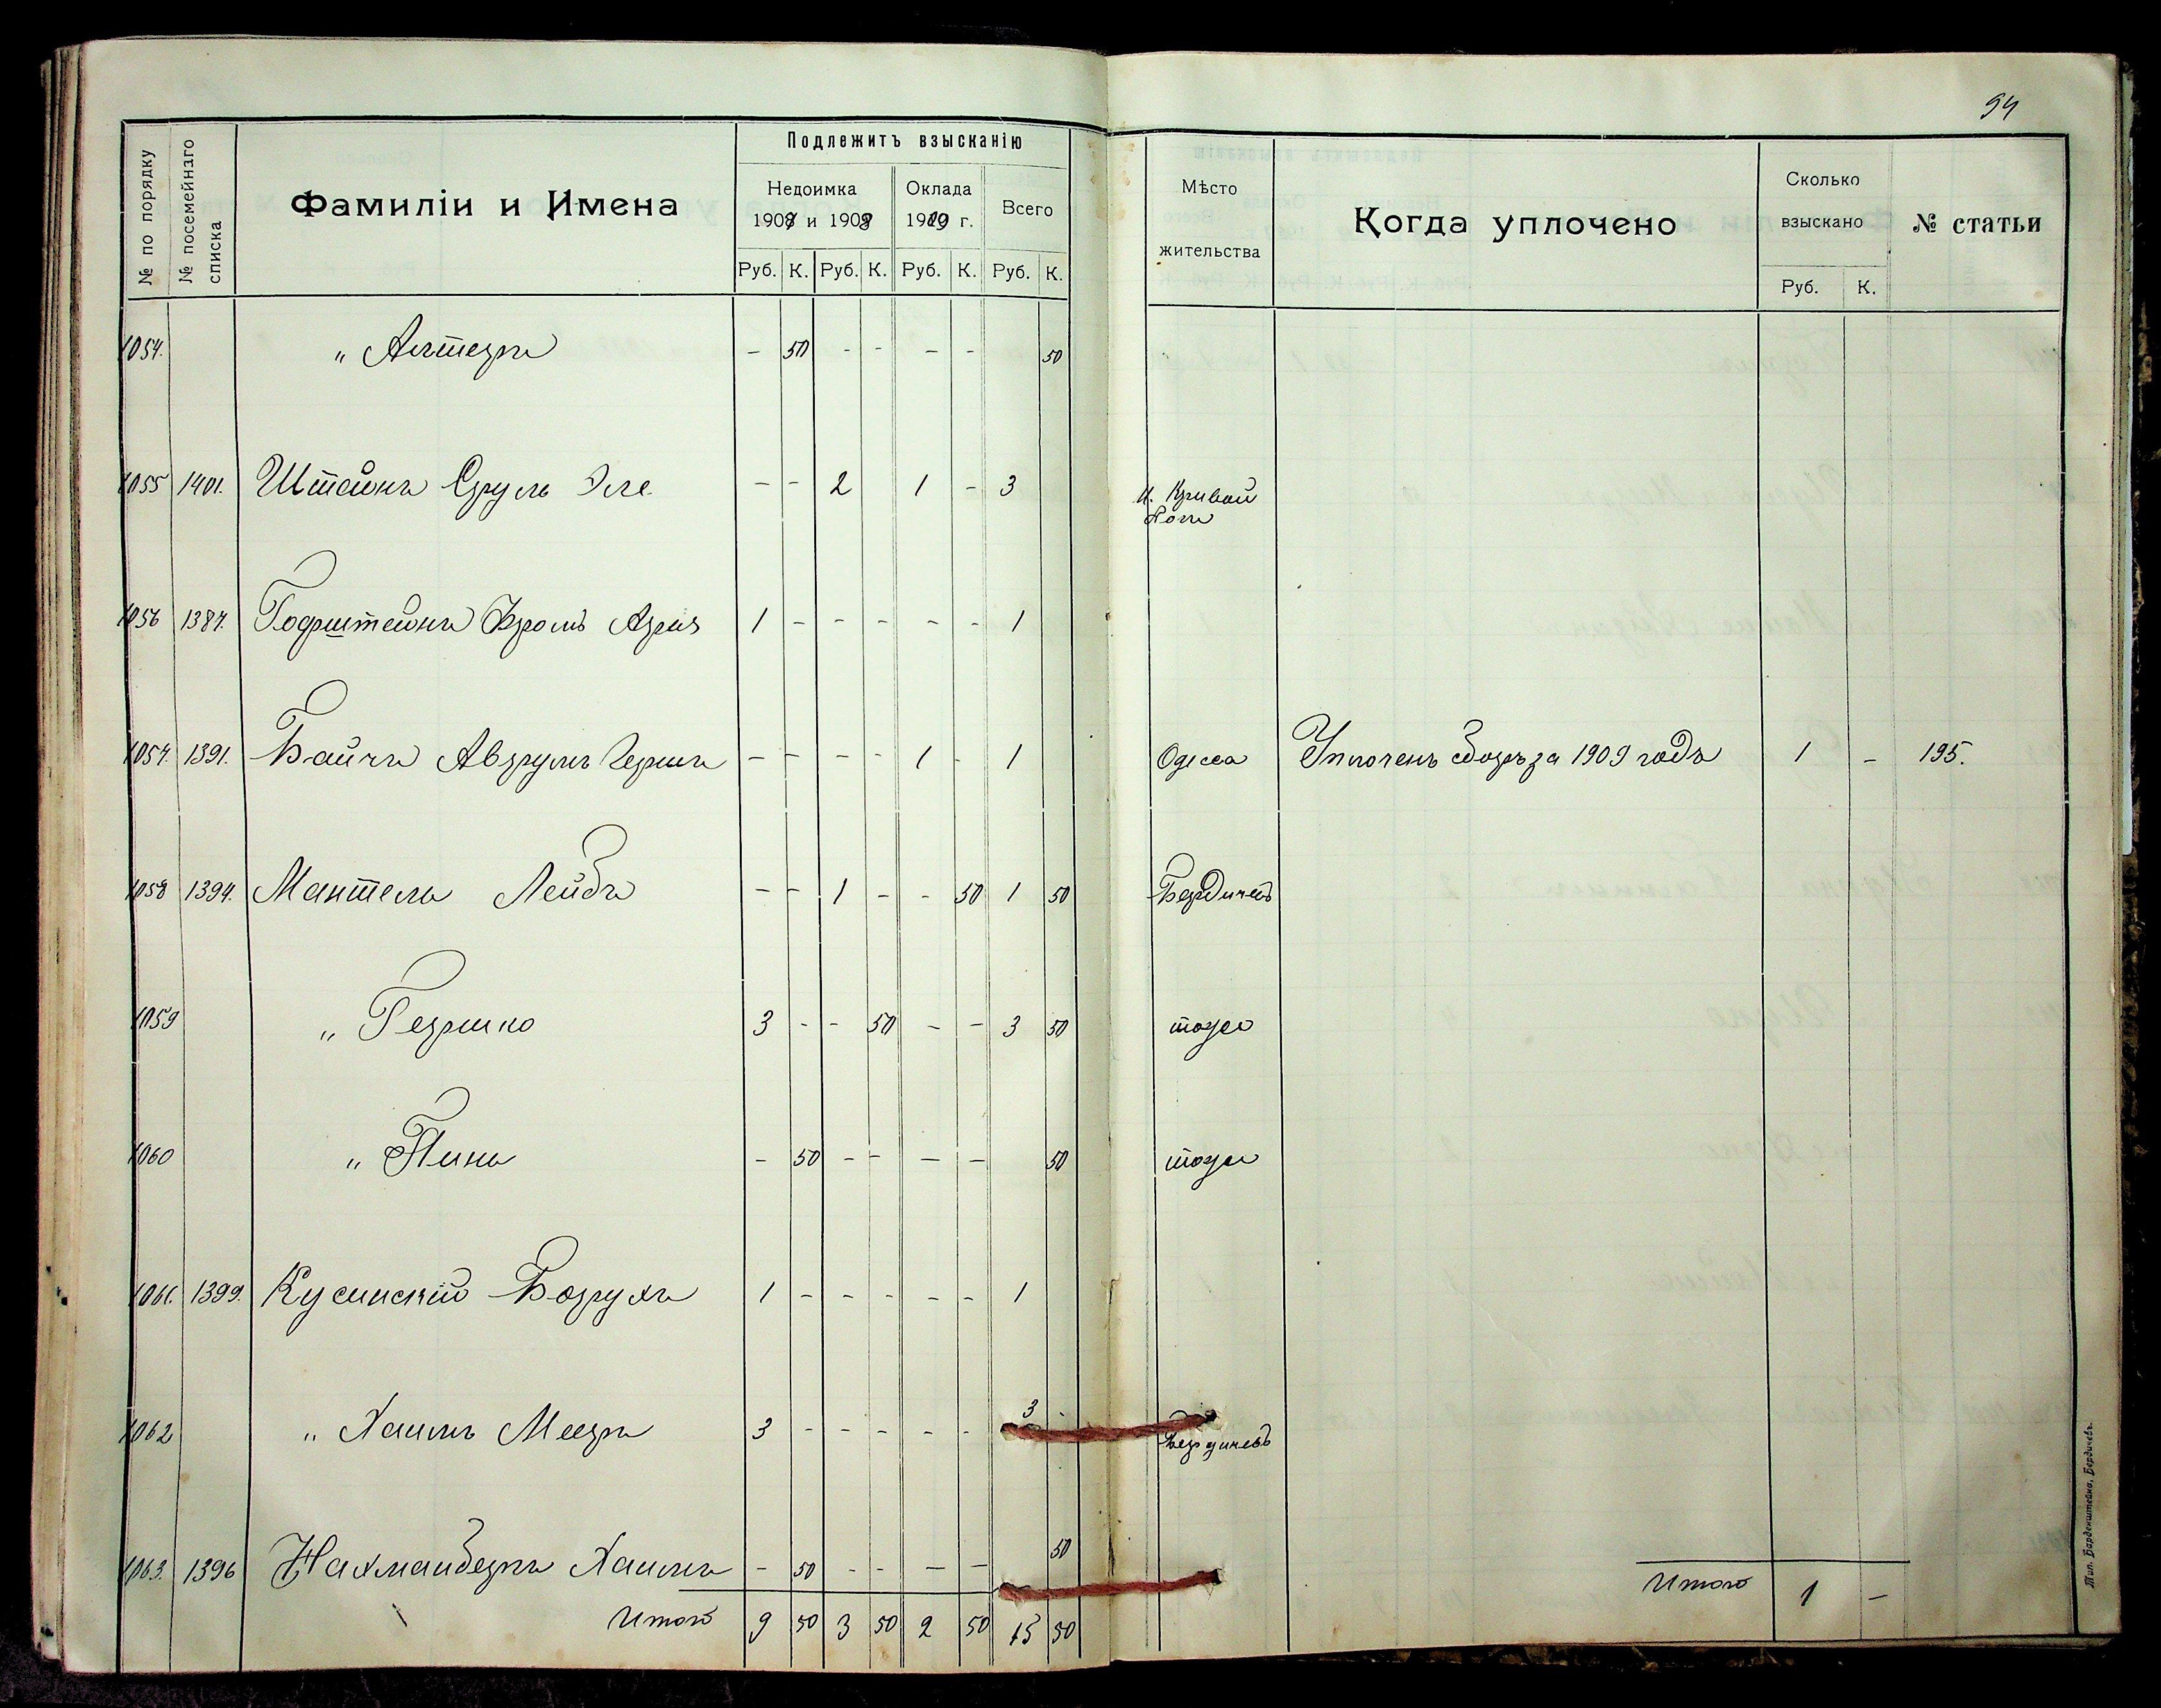 94
№ по порядку
№ посемейнаго списка
Фамиліи и Имена
Подлежитъ взысканію
Недоимка
1908 и 1908
Оклада
1909 г.
Всего
Руб. К. Руб. К. Руб. К. Руб. К.
Мѣсто
жительства
Когда уплочено
Сколько
взыскано
Руб. К.
№ статьи
1054. " Алтеръ - 50 - - - - 50
1055 1401. Штейнъ Сруль Эле - - 2 1 - 3 м. Кривой
Рогъ
1056 1387. Гофштейнъ Фроимъ Арья 1 - - - - - 1
1057. 1391. Байчъ Аврумъ Гершъ - - - - 1 - 1 Одесса Уплоченъ сборъ за 1909 годъ 1 - 195.
1058 1394. Мантель Лейбъ - - 1 - - 50 1 50 Бердичевъ
1059 " Гершко 3 - - 50 - - 3 50 тоже
1060 " Пинь - 50 - - - - 50 тоже
1061. 1399. Кусинскій Борухъ 1 - - - - - 1
1062 " Хаимъ Мееръ 3 - - - - - 3 - Бердичевъ
1063. 1396 Нахманберъ Хаимъ - 50 - - - - 50
Итого 9 50 3 50 2 50 15 50
Итого 1 -
Тип. Барденштейна, Бердичевъ.